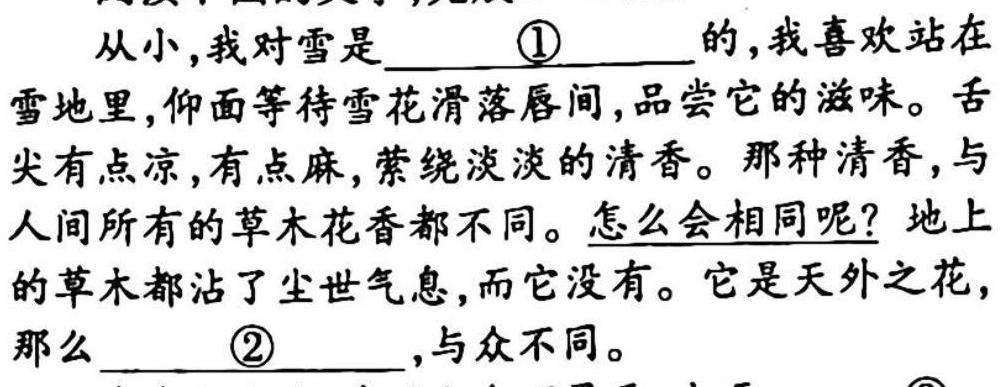 从小,我对雪是 ① 的,我喜欢站在
雪地里,仰面等待雪花滑落唇间,品尝它的滋味。舌
尖有点凉,有点麻,萦绕淡淡的清香。那种清香,与
人间所有的草木花香都不同。怎么会相同呢?地上
的草木都沾了尘世气息,而它没有。它是天外之花,
那么 ② ,与众不同。